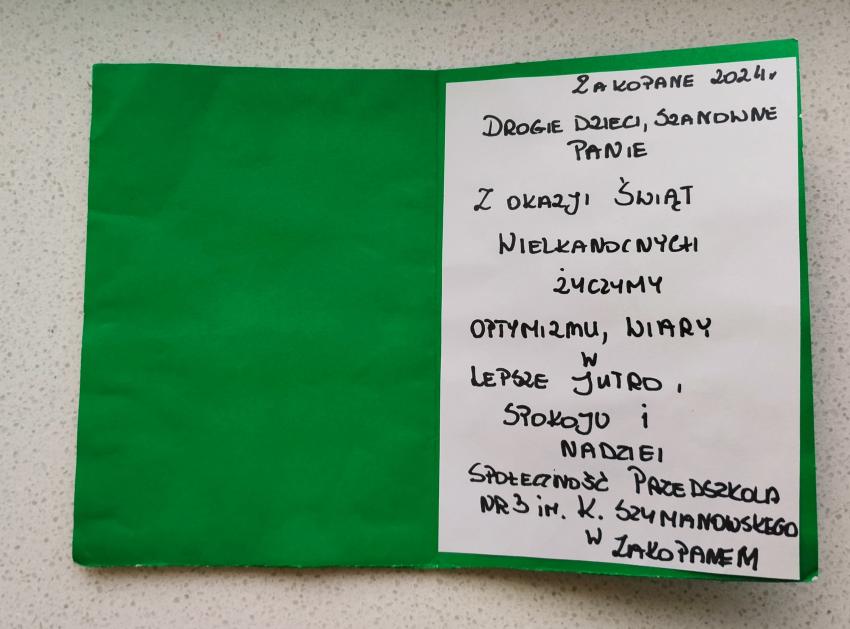 ZAKOPANE 2024r
DROGIE DZIECI, SZANOWNE
PANIE
Z OKAZJI ŚWIĄT
WIELKANOCNYCH
ŻYCZYMY
OPTYMIZMU, WIARY
W
LEPSZE JUTRO,
SPOKOJU i
NADZIEI
SPOŁECZNOŚĆ PRZEDSZKOLA
NR 3 im. K. SZYMANOWSKIEGO
W ZAKOPANEM